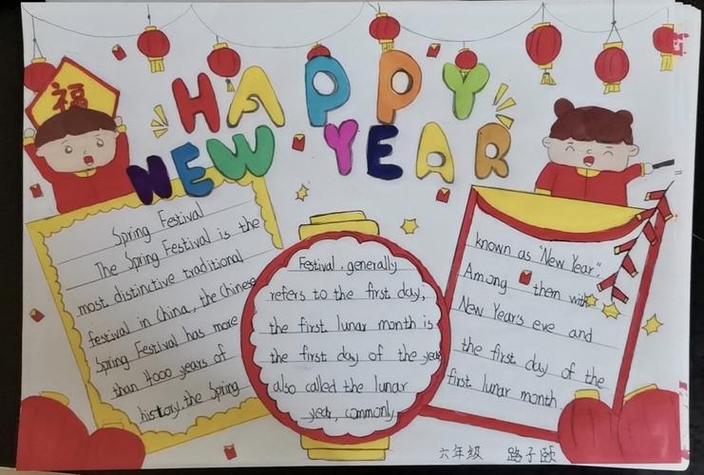 HAPPY
NEW YEAR
福
Spring Festival
The Spring Festival is the
most distinctive traditional
festival in China, the Chinese
Spring Festival has more
than 4000 years of
history. the Spring
Festival, generally
refers to the first day,
the first lunar month is
the first day of the year
also called the lunar
year, commonly
known as "New Year".
Among them with
New Year's eve and
the first day of the
first lunar month
六年级 路子颐